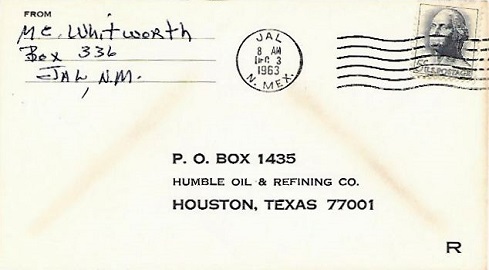 FROM
M.E. Whitworth
Box 336
Jal, N.M.
JAL
8 AM
DEC 3
1963
N. MEX.
5c U.S. POSTAGE
P. O. BOX 1435
HUMBLE OIL & REFINING CO.
HOUSTON, TEXAS 77001
R